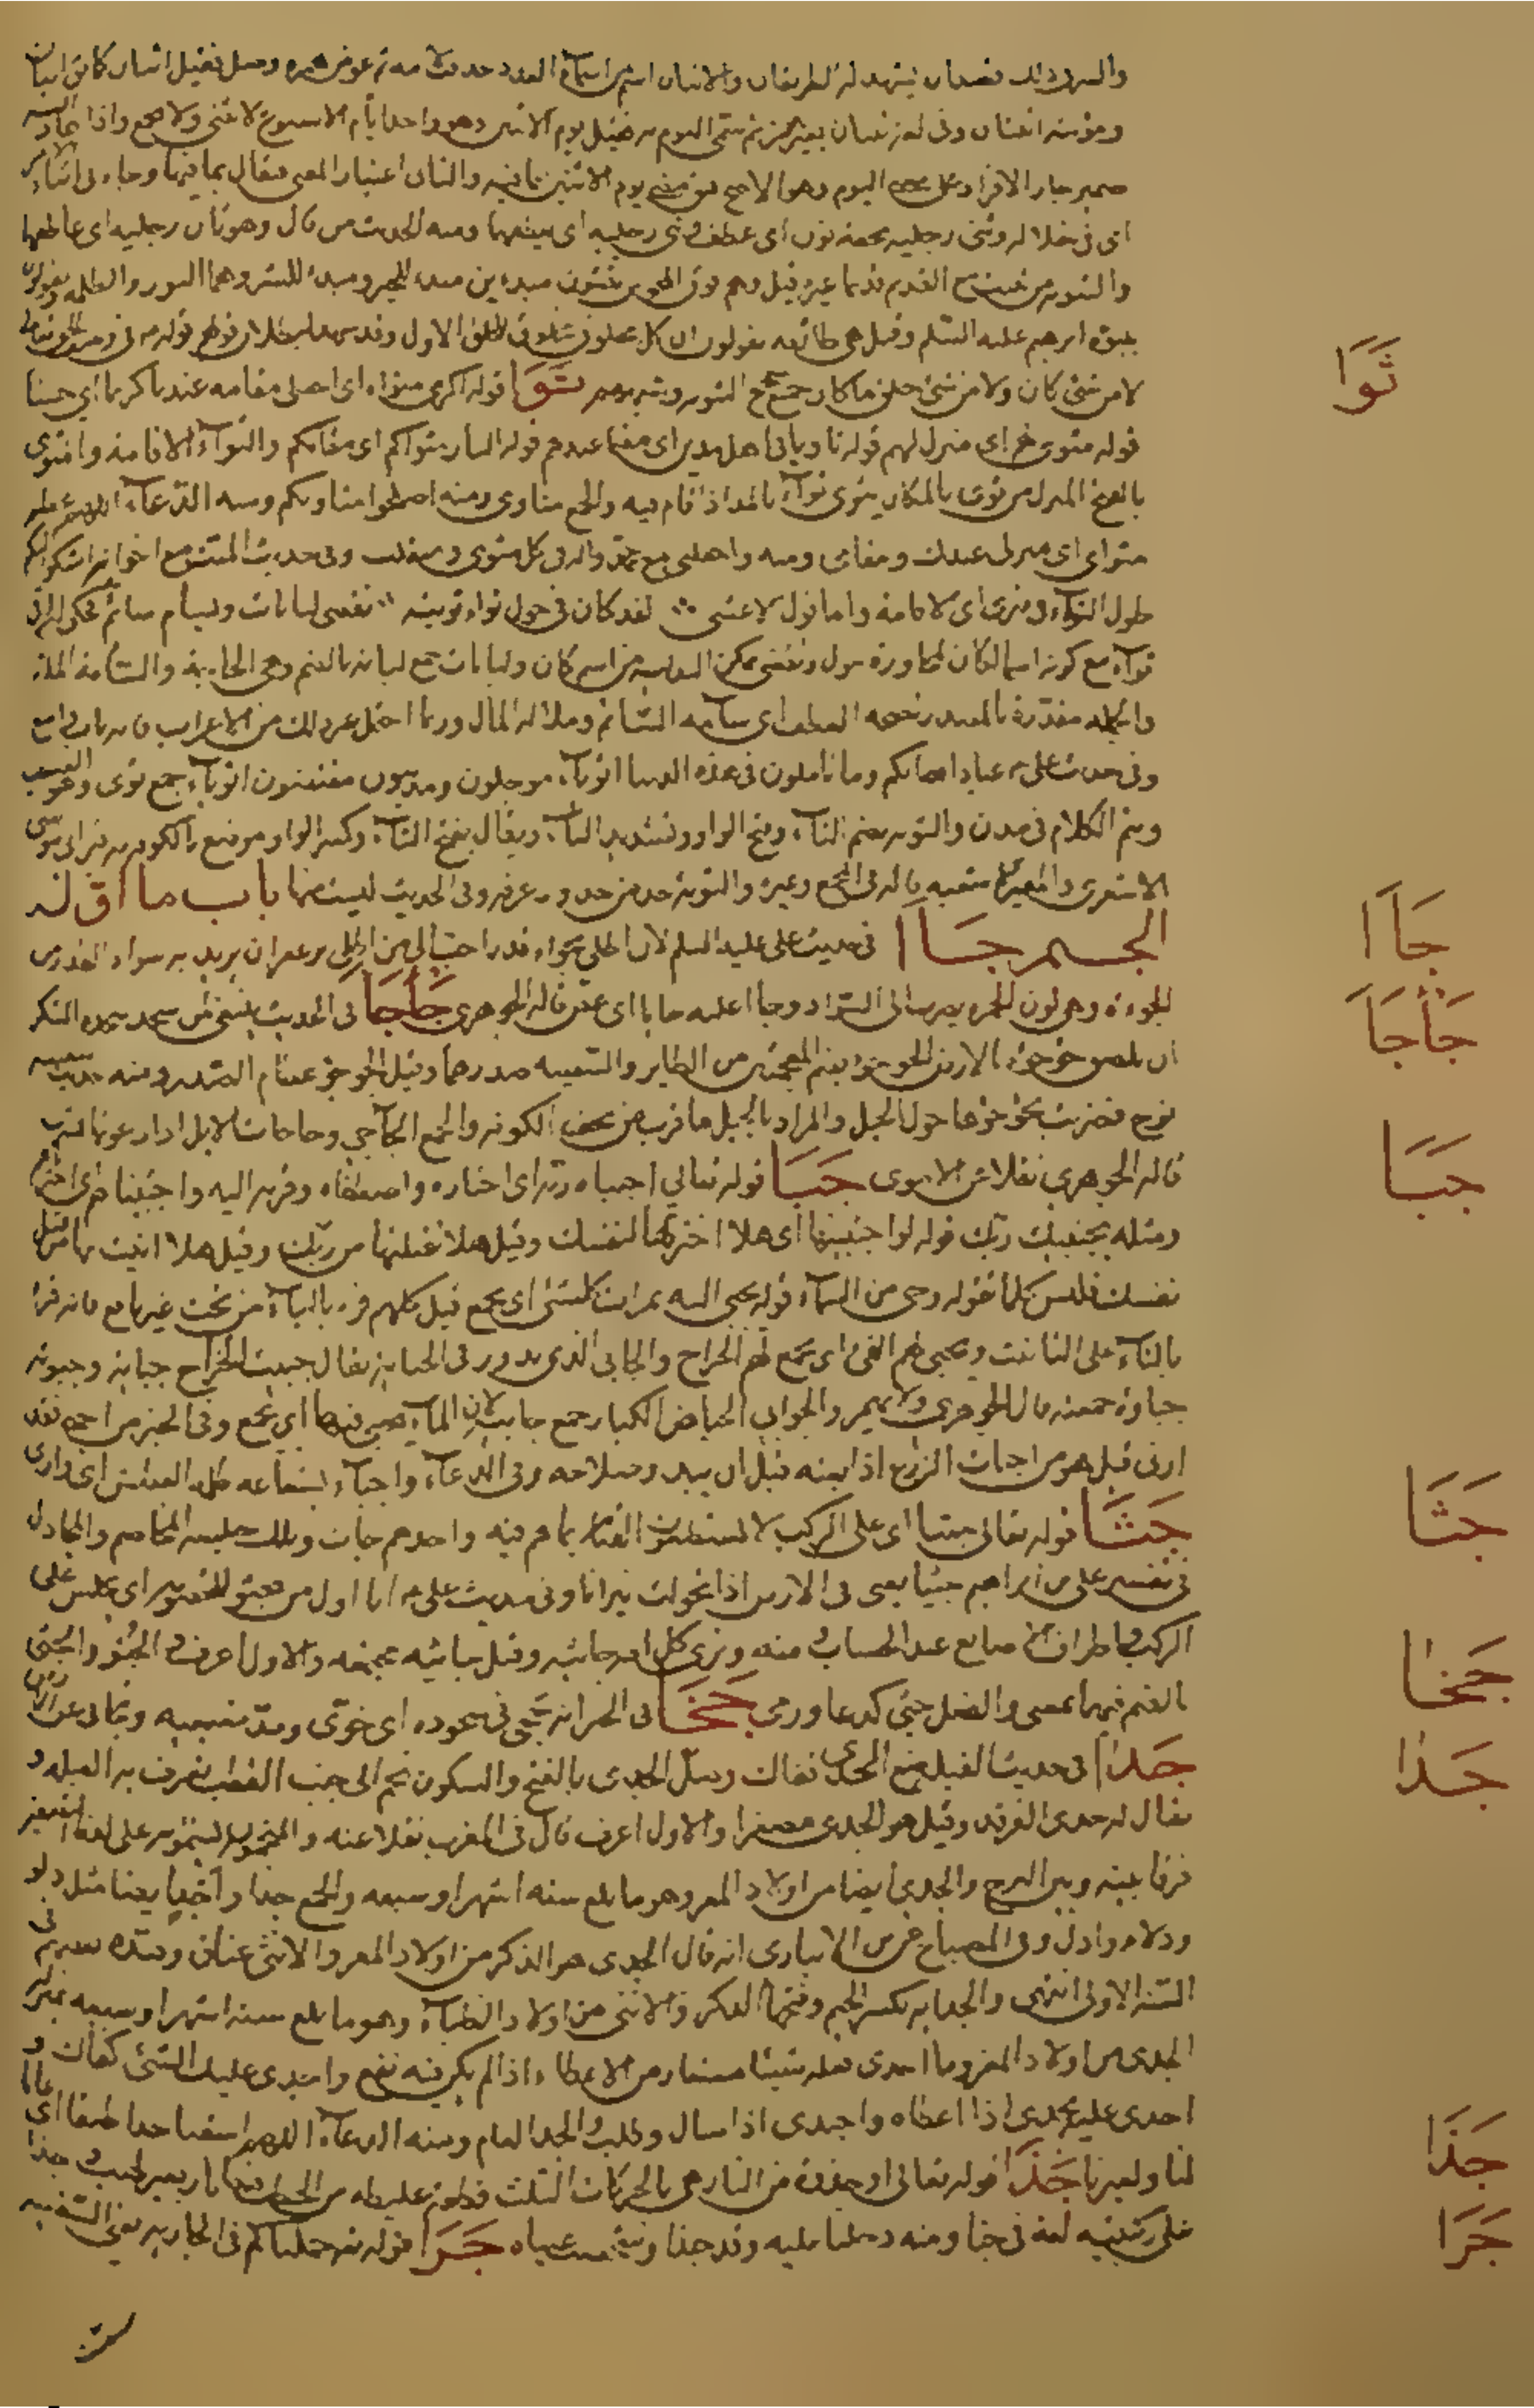 والاثنان اسم من اسماء العدد حذفت لامه ثم عوض همزة وصل فقيل اثنان كما قيل ابنان
ومؤنثه اثنتان وفى لغة ثنتان بغير همز ثم سمى اليوم به فقيل يوم الاثنين وهو واحد ايام الاسبوع لا يثنى ولا يجمع واذا عاد اليه
ضمير جاز الافراد على معنى اليوم وهو الاصح يقال مضى يوم الاثنين بما فيه والثانى اعتبار المعنى فيقال بما فيهما وجاء فى اثناء الامر
اى فى خلاله وثنى رجليه بخفة نون اى عطف ومنه الحديث من قال وهو ثان رجليه اى عاطفهما
والثنوية من يثبت مع القديم قديما غيره قيل وهم فرق المجوس يثبتون مبدءين مبدء للخير ومبدء للشر وهما النور والظلمة ويقولون
بنبوة ابرهيم عليه السلم وقيل هم طائفة يقولون ان كل مخلوق مخلوق للخلق الاول وقد شهد لبطلان قولهم قوله
لا من شئ كان ولا من شئ خلق ما كان جميع حجج الثنوية وشبههم ثَوَا قوله اكرمى مثواه اى اجعلى مقامه عندنا كريما اى حسنا
قوله مثوى لهم اى منزل لهم قوله ثاويا فى اهل مدين اى مقيما عندهم قوله النار مثواكم اى مقامكم والثواء الاقامة والمثوى
بالفتح المنزل من ثوى بالمكان يثوى ثواء بالمد اذا اقام فيه والجمع مثاوى ومنه اصلحوا مثاويكم ومنه الدعاء اللهم عظم
مثواى اى منزلى عندك ومقامى ومنه واجعلنى مع محمد واله فى كل مثوى ومنقلب وفى حديث الميت مع اخوانه اشكو اليكم
طول الثواء فى قبرى اى الاقامة واما قول الاعشى لقد كان فى حول ثواء ثويته تقضى لبانات ويسأم سائم
ثواء مع كونه اسما لكان لمجاورة حول وتقضى خبر كان ولبانات جمع لبانة بالضم وهى الحاجة والسآمة الملالة
وفى حديث على ع عباد الله انكم وما تاملون فى هذه الدنيا اثوياء مؤجلون ومدينون مقتضون اثوياء جمع ثوى وهو الضيف
ويتم الكلام فى مدن والثوية بضم الثاء وفتح الواو وتشديد الياء ويقال بفتح الثاء وكسر الواو موضع بالكوفة به قبر ابى موسى
الاشعرى والمغيرة بن شعبة قاله فى المجمع وغيره والثوية حد من حدود عرفة وفى الحديث ليست منها باب ما اوله
الجيم جَاَا فى حديث على عليه السلم لان اطلى بجواء قدر احب الى من ان اطلى بزعفران يريد به سواد القدر من
الجوءة وهى لون الحمرة يضرب الى السواد وجاا عليه جايا اى عض قاله الجوهرى جَأجَأ فى الحديث ينبغى لمن سجد سجدة الشكر
ان يلصق جؤجؤه بالارض الجؤجؤ بضم المعجمتين من الطاير والسفينة صدرهما وقيل الجؤجؤ عظام الصدر ومنه حديث سفينة
نوح فضربت بجؤجؤها حول الجبل والمراد بالجبل ما قرب من نجف الكوفة والجمع الجآجى وجاجات بالابل اذا دعوتها لتشرب
قاله الجوهرى نقلا عن الاموى جَبَا قوله تعالى اجتباه ربه اى اختاره واصطفاه وقربه اليه واجتبيناهم اى اخترناهم
ومثله يجتبيك ربك قوله لولا اجتبيتها اى هلا اخترتها لنفسك وقيل هلا تقبلتها من ربك وقيل هلا اتيت بها من قبل
نفسك فليس كلما تقوله وحى من السماء قوله يجبى اليه ثمرات كل شئ اى يجمع قيل كلهم قرء بالياء من تحت غير نافع فانه قرا
بالتاء على التانيث ويجبى لهم الفئ اى يجمع لهم الخراج والجابى الذى يدور فى الجباية يقال جبيت الخراج جباية وجبوته
جباوة جمعته قال الجوهرى ولا يهمز والجوابى الحياض الكبار جمع جابية لان الماء يجبى فيها اى يجمع وفى الخبر من اجبى فقد
اربى قيل هو من اجبات الزرع اذا بعته قبل ان يبدو صلاحه وفى الدعاء واجباء
جَثَا قوله تعالى جثيا اى على الركب لا يستطيعون القيام بما هم فيه واحدهم جاث وتلك جلسة المخاصم والمجادل
فى تفسير على بن ابراهيم جثيا يعنى فى الارض اذا تحولت نيرانا وفى حديث على ع انا اول من يجثو للخصومة اى يجلس على
الركب واطراف الاصابع عند الحساب ومنه وترى كل امة جاثية وقيل جاثية مجتمعة والاول اعرف والجثو والجثى
بالضم فيهما بمعنى والفعل جثى كدعا ورمى جَخَا فى الخبر انه جخى فى سجوده اى خوى ومد ضبعيه وتجافى عن الارض
جَدَا فى حديث القبلة ضع الجدى قفاك وصل الجدى بالفتح والسكون نجم الى جنب القطب تعرف به القبلة و
يقال له جدى الفرقد وقيل هو الجدى مصغرا والاول اعرف قال فى المغرب نقلا عنه والمنجمون يسمونه على لفظ التصغير
فرقا بينه وبين البرج والجدى ايضا من اولاد المعز وهو ما بلغ ستة اشهر او سبعة والجمع جدا واجد ايضا مثل دلو
ودلاء وادل وفى المصباح عن ابن الانبارى انه قال الجدى هو الذكر من اولاد المعز والانثى عناق وقيده بعضهم فى
السنة الاولى انتهى والجداية بكسر الجيم وفتحها الذكر والانثى من اولاد الظباء وهو ما بلغ ستة اشهر او سبعة بمنزلة
الجدى من اولاد المعز وما اجدى فعله شيئا مستعار من الاعطاء اذا لم يكن فيه نفع واجدى عليك الشئ كفاك و
اجدى عليه يجدى اذا اعطاه واجتدى اذا سال وطلب والجدا العام ومنه الدعاء اللهم اسقنا جدا طبقا اى عاما
لنا ولغيرنا جَذَا قوله تعالى او جذوة من النار هى بالحركات الثلث قطعة غليظة من الحطب فيها نار بغير لهب وجذا
على ركبتيه لغة فى جثا ومنه دخلنا عليه وقد جذا عيناه جَرَا قوله تعالى حملناكم فى الجارية يعنى السفينة
ثَوَا
جَاَا
جَأجَأ
جَبَا
جَثَا
جَخَا
جَدَا
جَذَا
جَرَا